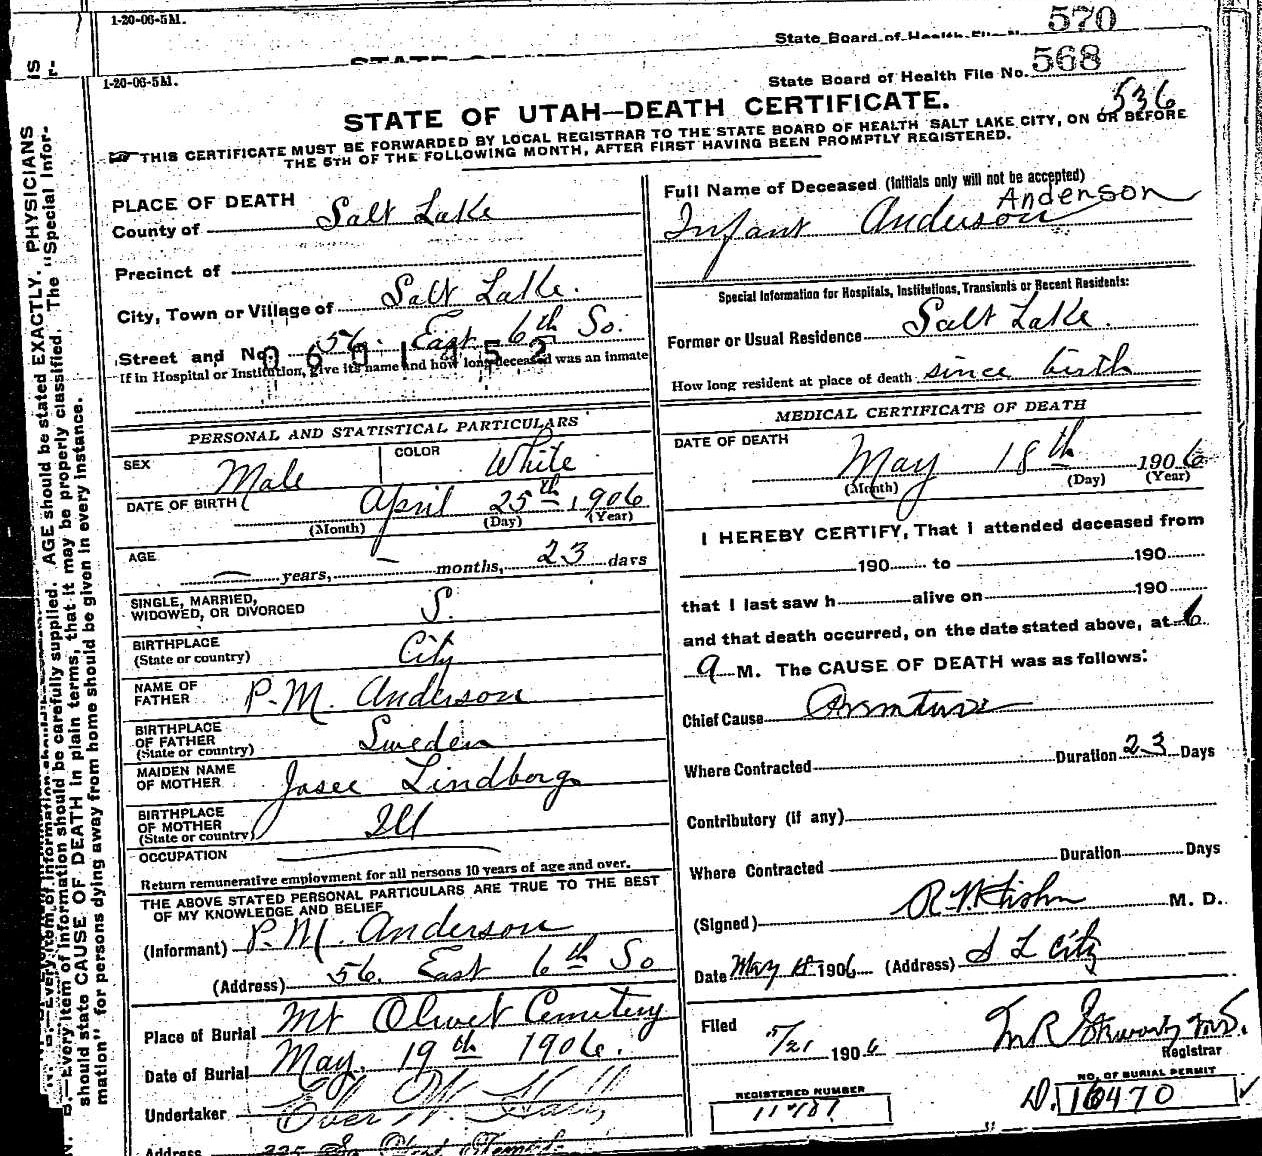 1-20-06-5M.
570
State Board of Health File N
1-20-06-5M.
State Board of Health File No. 568
STATE OF UTAH—DEATH CERTIFICATE.
536
THIS CERTIFICATE MUST BE FORWARDED BY LOCAL REGISTRAR TO THE STATE BOARD OF HEALTH SALT LAKE CITY, ON OR BEFORE
THE 5TH OF THE FOLLOWING MONTH, AFTER FIRST HAVING BEEN PROMPTLY REGISTERED.
PLACE OF DEATH
County of Salt Lake
Precinct of
City, Town or Village of Salt Lake.
Street and No. 56. East 6th So.
0601952
If in Hospital or Institution, give its name and how long deceased was an inmate
PERSONAL AND STATISTICAL PARTICULARS
SEX Male COLOR White
DATE OF BIRTH April 25th 1906
(Month) (Day) (Year)
AGE — years, — months, 23 days
SINGLE, MARRIED,
WIDOWED, OR DIVORCED S.
BIRTHPLACE
(State or country) City
NAME OF
FATHER P. M. Anderson
BIRTHPLACE
OF FATHER
(State or country) Sweden
MAIDEN NAME
OF MOTHER Josee Lindborg
BIRTHPLACE
OF MOTHER
(State or country) Ill
OCCUPATION
Return remunerative employment for all persons 10 years of age and over.
THE ABOVE STATED PERSONAL PARTICULARS ARE TRUE TO THE BEST
OF MY KNOWLEDGE AND BELIEF
(Informant) P. M. Anderson
(Address) 56. East 6th So
Place of Burial Mt Olivet Cemetery
Date of Burial May. 19th 1906.
Undertaker Eber W. Hall
Address
Full Name of Deceased (Initials only will not be accepted)
Anderson
Infant Anderson
Special Information for Hospitals, Institutions, Transients or Recent Residents:
Former or Usual Residence Salt Lake.
How long resident at place of death since birth
MEDICAL CERTIFICATE OF DEATH
DATE OF DEATH May 18th 1906
(Month) (Day) (Year)
I HEREBY CERTIFY, That I attended deceased from
190 to 190
that I last saw h alive on 190
and that death occurred, on the date stated above, at 6
a M. The CAUSE OF DEATH was as follows:
Chief Cause
Where Contracted Duration 23 Days
Contributory (if any)
Where Contracted Duration Days
(Signed) M. D.
Date May 18 1906 (Address) S L City
Filed 5/21 1906
Registrar
REGISTERED NUMBER
NO. OF BURIAL PERMIT
D. 16470
should state CAUSE OF DEATH in plain terms, that it may be properly classified. The "Special Infor-
mation" for persons dying away from home should be given in every instance.
B.—Every item of information should be carefully supplied. AGE should be stated EXACTLY. PHYSICIANS